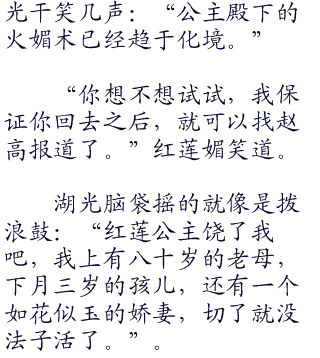 光干笑几声：“公主殿下的
火媚术已经趋于化境。”
“你想不想试试，我保
证你回去之后，就可以找赵
高报道了。”红莲媚笑道。
湖光脑袋摇的就像是拨
浪鼓：“红莲公主饶了我
吧，我上有八十岁的老母，
下月三岁的孩儿，还有一个
如花似玉的娇妻，切了就没
法子活了。”。